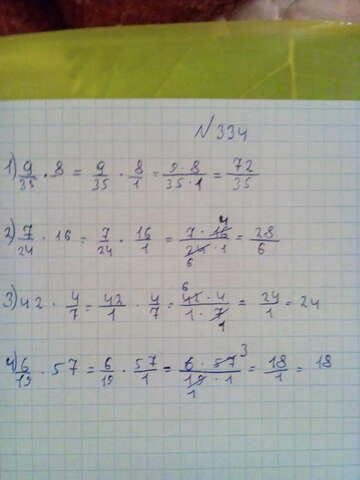 №334
1) 9/35 · 8 = 9/35 · 8/1 = 9·8/35·1 = 72/35
2) 7/24 · 16 = 7/24 · 16/1 = 7·16 4/24·1 6 = 28/6
3) 42 · 4/7 = 42/1 · 4/7 = 6 42·4/1·7 1 = 24/1 = 24
4) 6/19 · 57 = 6/19 · 57/1 = 6·57 3/19·1 1 = 18/1 = 18